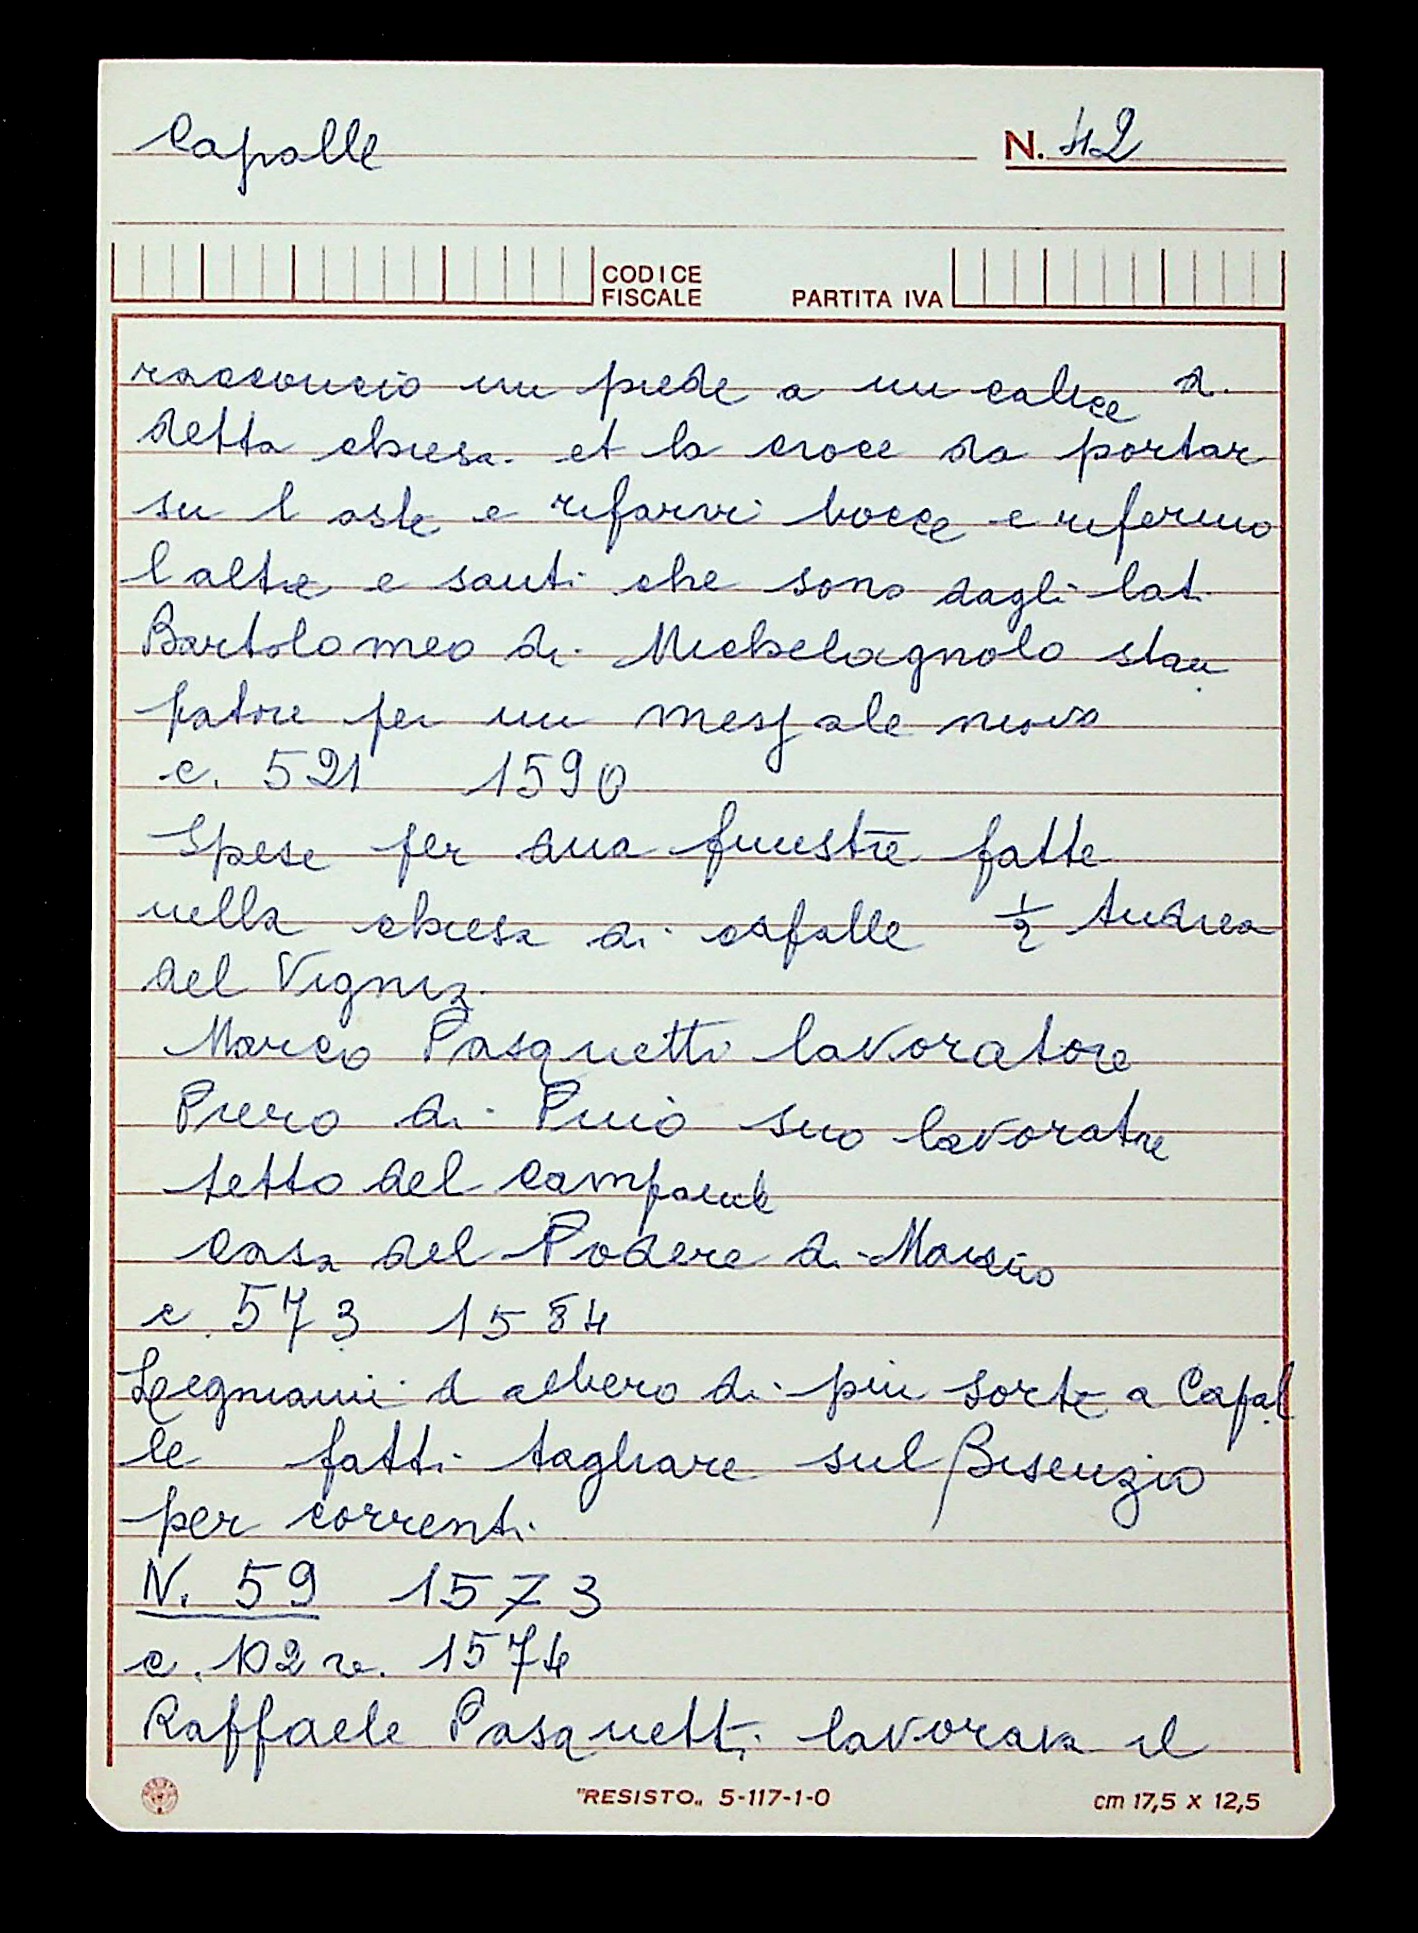 Capalle N. 42
CODICE FISCALE PARTITA IVA
racconcio un piede a un calice d.
detta chiesa. et la croce da portar
su l aste e rifarvi bocce e rifermo
l altre e santi che sono dagli lati
Bartolomeo di Michelagnolo stan
patore per un messale nuovo
c. 521 1590
Spese per dua finestre fatte
nella chiesa di capalle ½ Andrea
del Vigna
Marco Pasquetti lavoratore
Piero di Pino suo lavoratre
tetto del campanile
casa del Podere di
c. 573 1584
Legniami d albero di più sorte a Capal
le fatti tagliare sul Bisenzio
per correnti
N. 59 1573
c. 102 r. 1574
Raffaele Pasquetti lavorava il
"RESISTO„ 5-117-1-0 cm 17,5 x 12,5